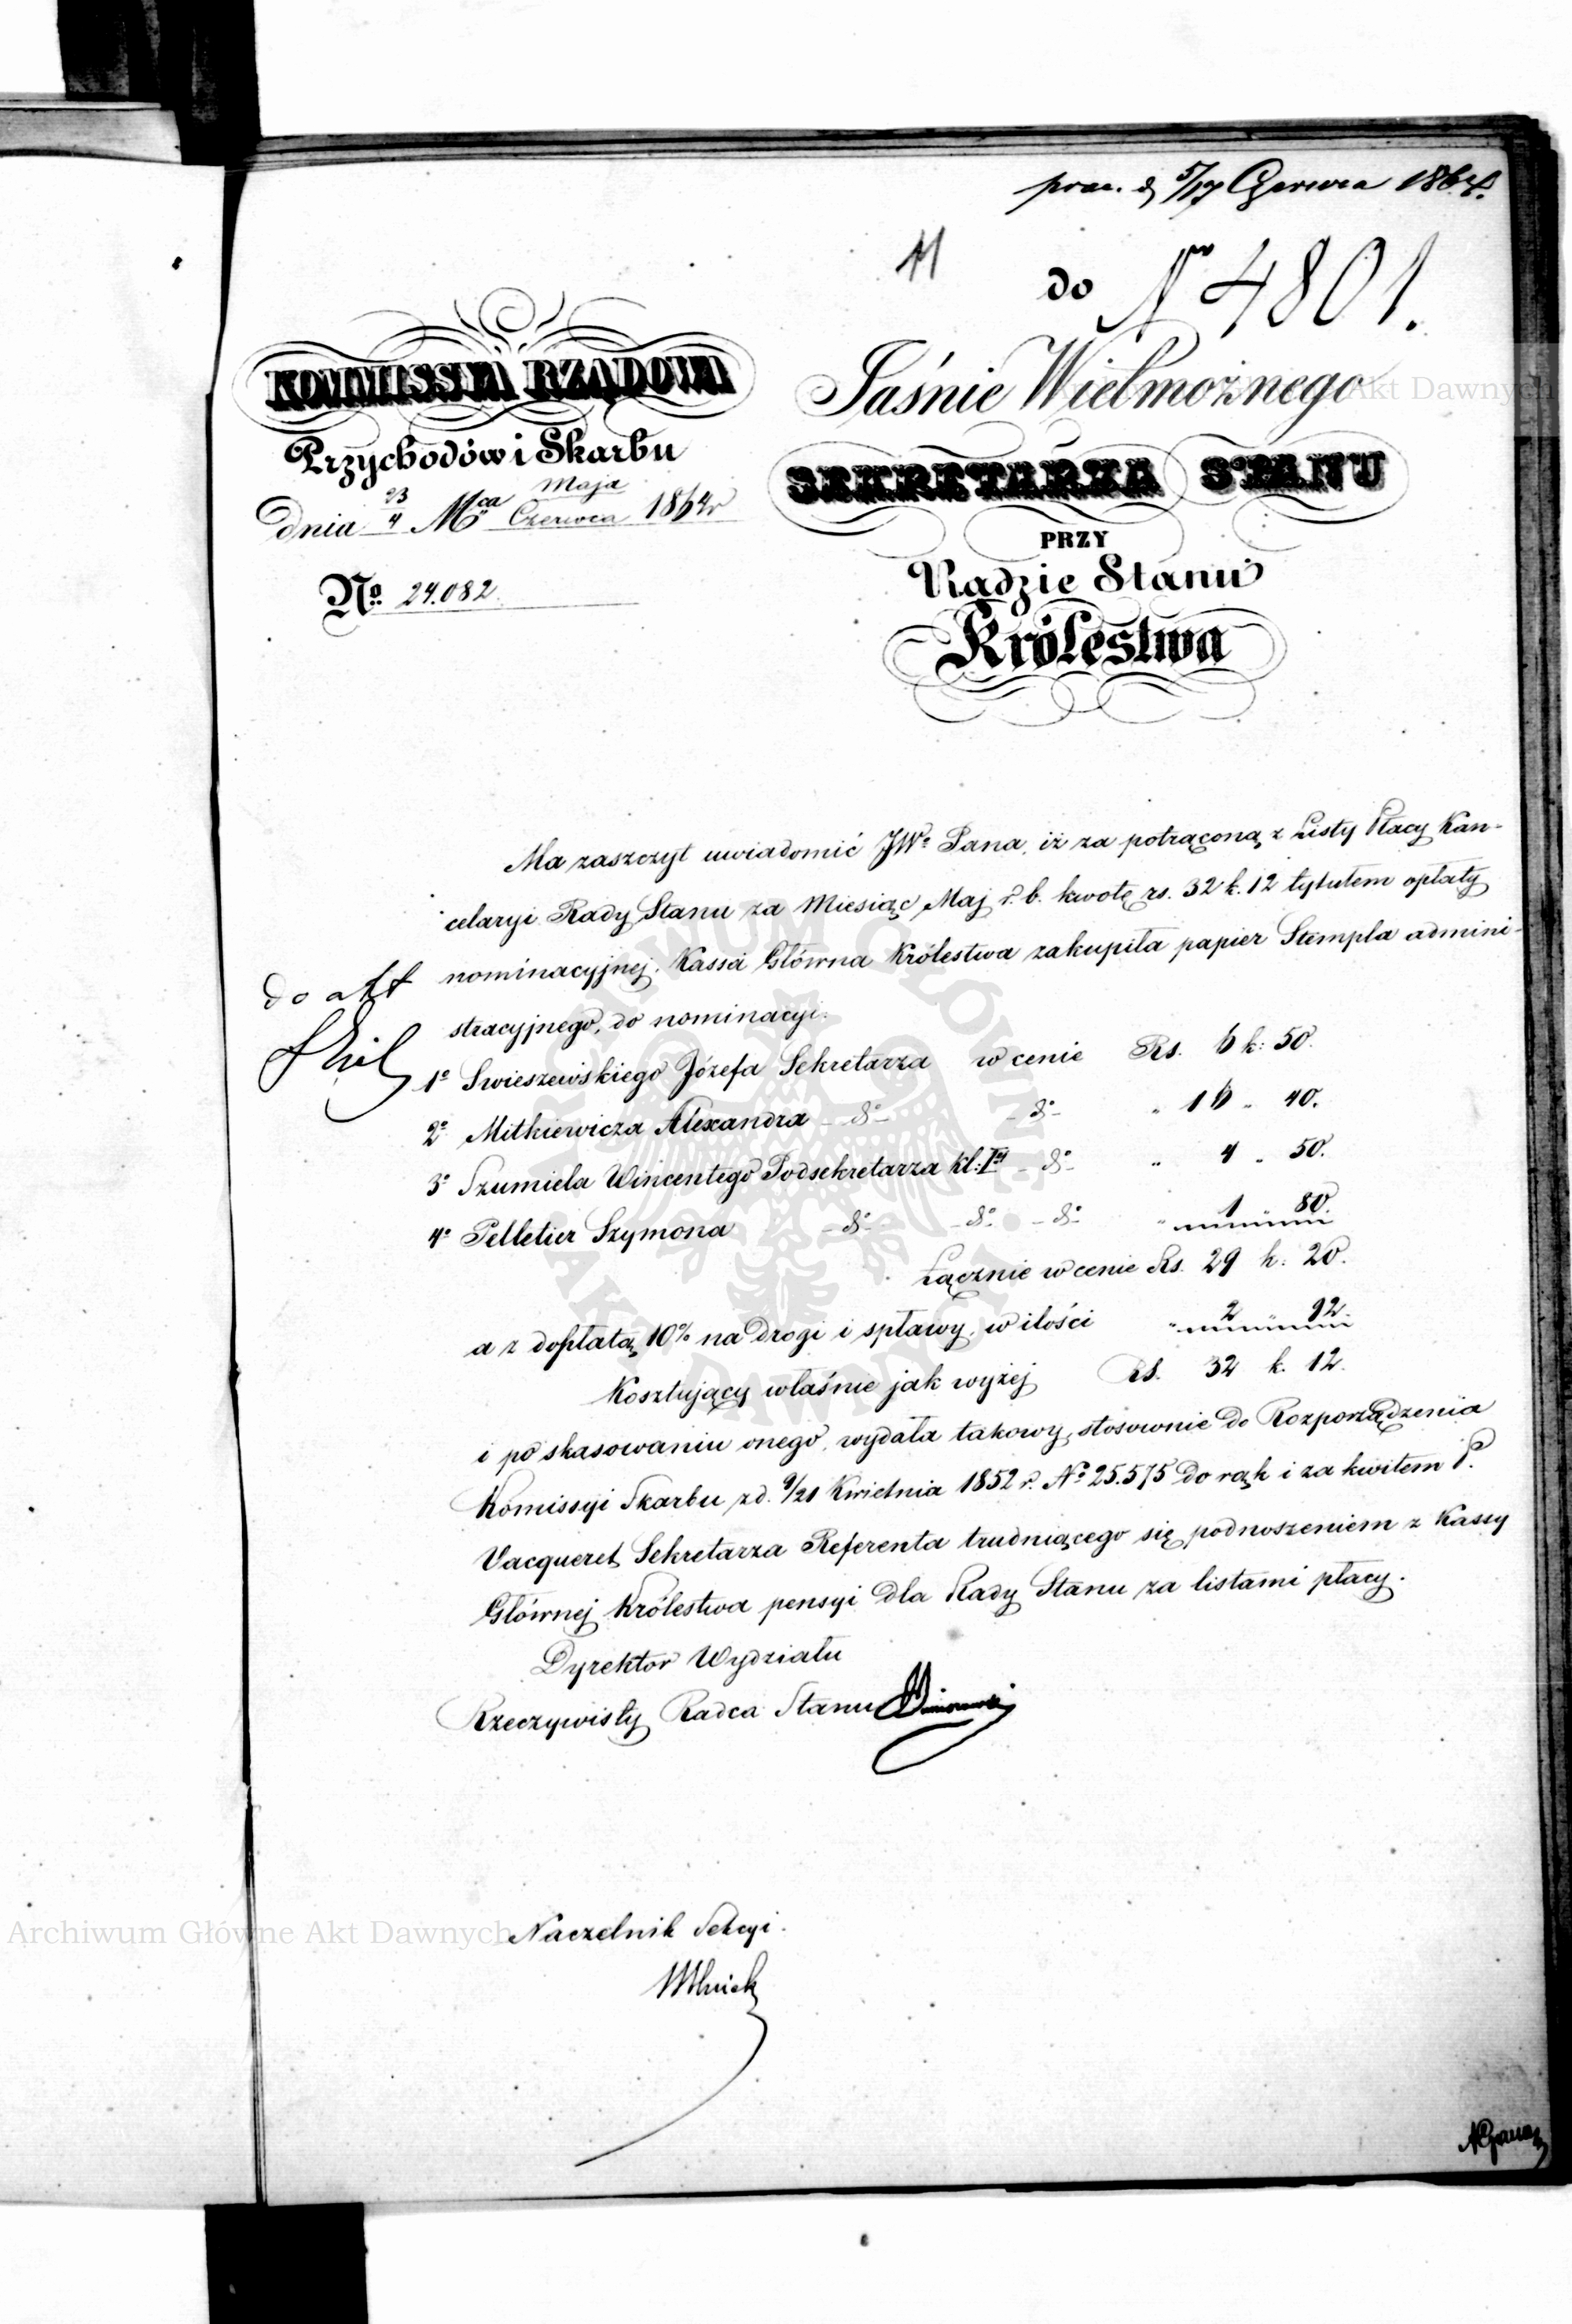 prez. d 5/17 Czerwca 1864.
11
do Nr 4801.
KOMMISSYA RZĄDOWA
Przychodów i Skarbu
dnia 23/4 Mca Maja/Czerwca 1864 r
No 24.082
Jaśnie Wielmożnego
SEKRETARZA STANU
PRZY
Radzie Stanu
Królestwa
Ma zaszczyt uwiadomić JWo Pana, iż za potrąconą z Listy Płacy Kan-
celaryi Rady Stanu za Miesiąc Maj r. b. kwotę rs. 32 k. 12 tytułem opłaty
nominacyjnej, Kassa Główna Królestwa zakupiła papier Stempla admini-
stracyjnego, do nominacyi.
do akt
1o Swieszewskiego Józefa Sekretarza w cenie Rs. 6 k: 50.
2o Mitkiewicza Alexandra – do – – do – " 16 " 40.
3o Szumiela Wincentego Podsekretarza kl: I – do – " 4 " 50.
4o Pelletier Szymona – do – – do – – do – " 1 " 80.
Łącznie w cenie Rs. 29 k: 20.
a z dopłatą 10% na drogi i spławy, w ilości " 2 " 92.
Kosztujący właśnie jak wyżej Rs. 32 k. 12.
i po skasowaniu onego, wydała takowy, stosownie do Rozporządzenia
Komissyi Skarbu z d. 9/21 Kwietnia 1852 r. No 25.575 do rąk i za kwitem P.
Vacqueret Sekretarza Referenta trudniącego się podnoszeniem z Kassy
Głównej Królestwa pensyi dla Rady Stanu za listami płacy.
Dyrektor Wydziału
Rzeczywisty Radca Stanu
Naczelnik Sekcyi.
Archiwum Główne Akt Dawnych